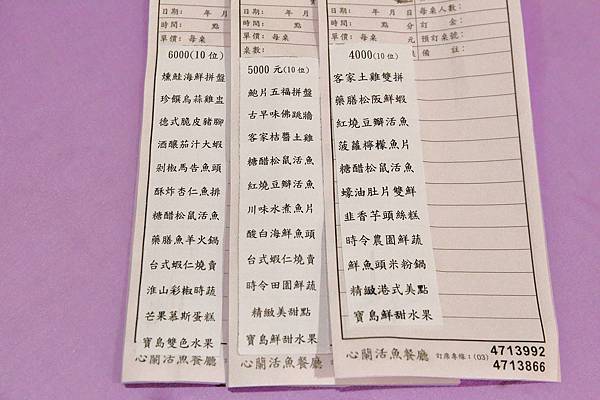 日期： 年 月
時間： 點
單價：每桌
6000(10位)
燻鮭海鮮拼盤
珍饌烏蒜雞盅
德式脆皮豬腳
酒釀茄汁大蝦
剁椒馬告魚頭
酥炸杏仁魚排
糖醋松鼠活魚
藥膳魚羊火鍋
台式蝦仁燒賣
淮山彩椒時蔬
芒果慕斯蛋糕
寶島雙色水果
心蘭活魚餐廳
日期： 年 月
時間： 點
單價：每桌
桌數：
5000元(10位)
鮑片五福拼盤
古早味佛跳牆
客家桔醬土雞
糖醋松鼠活魚
紅燒豆瓣活魚
川味水煮魚片
酸白海鮮魚頭
台式蝦仁燒賣
時令田園鮮蔬
精緻美甜點
寶島鮮甜水果
心蘭活魚餐廳
日期： 年 月 每桌人數：
時間： 點 分 訂 金：
單價：每桌 元 預訂桌號：
備 註：
4000(10位)
客家土雞雙拼
藥膳松阪鮮蝦
紅燒豆瓣活魚
菠蘿檸檬魚片
糖醋松鼠活魚
蠔油肚片雙鮮
韭香芋頭絲糕
時令農園鮮蔬
鮮魚頭米粉鍋
精緻港式美點
寶島鮮甜水果
心蘭活魚餐廳 訂席專線：(03) 4713992
4713866